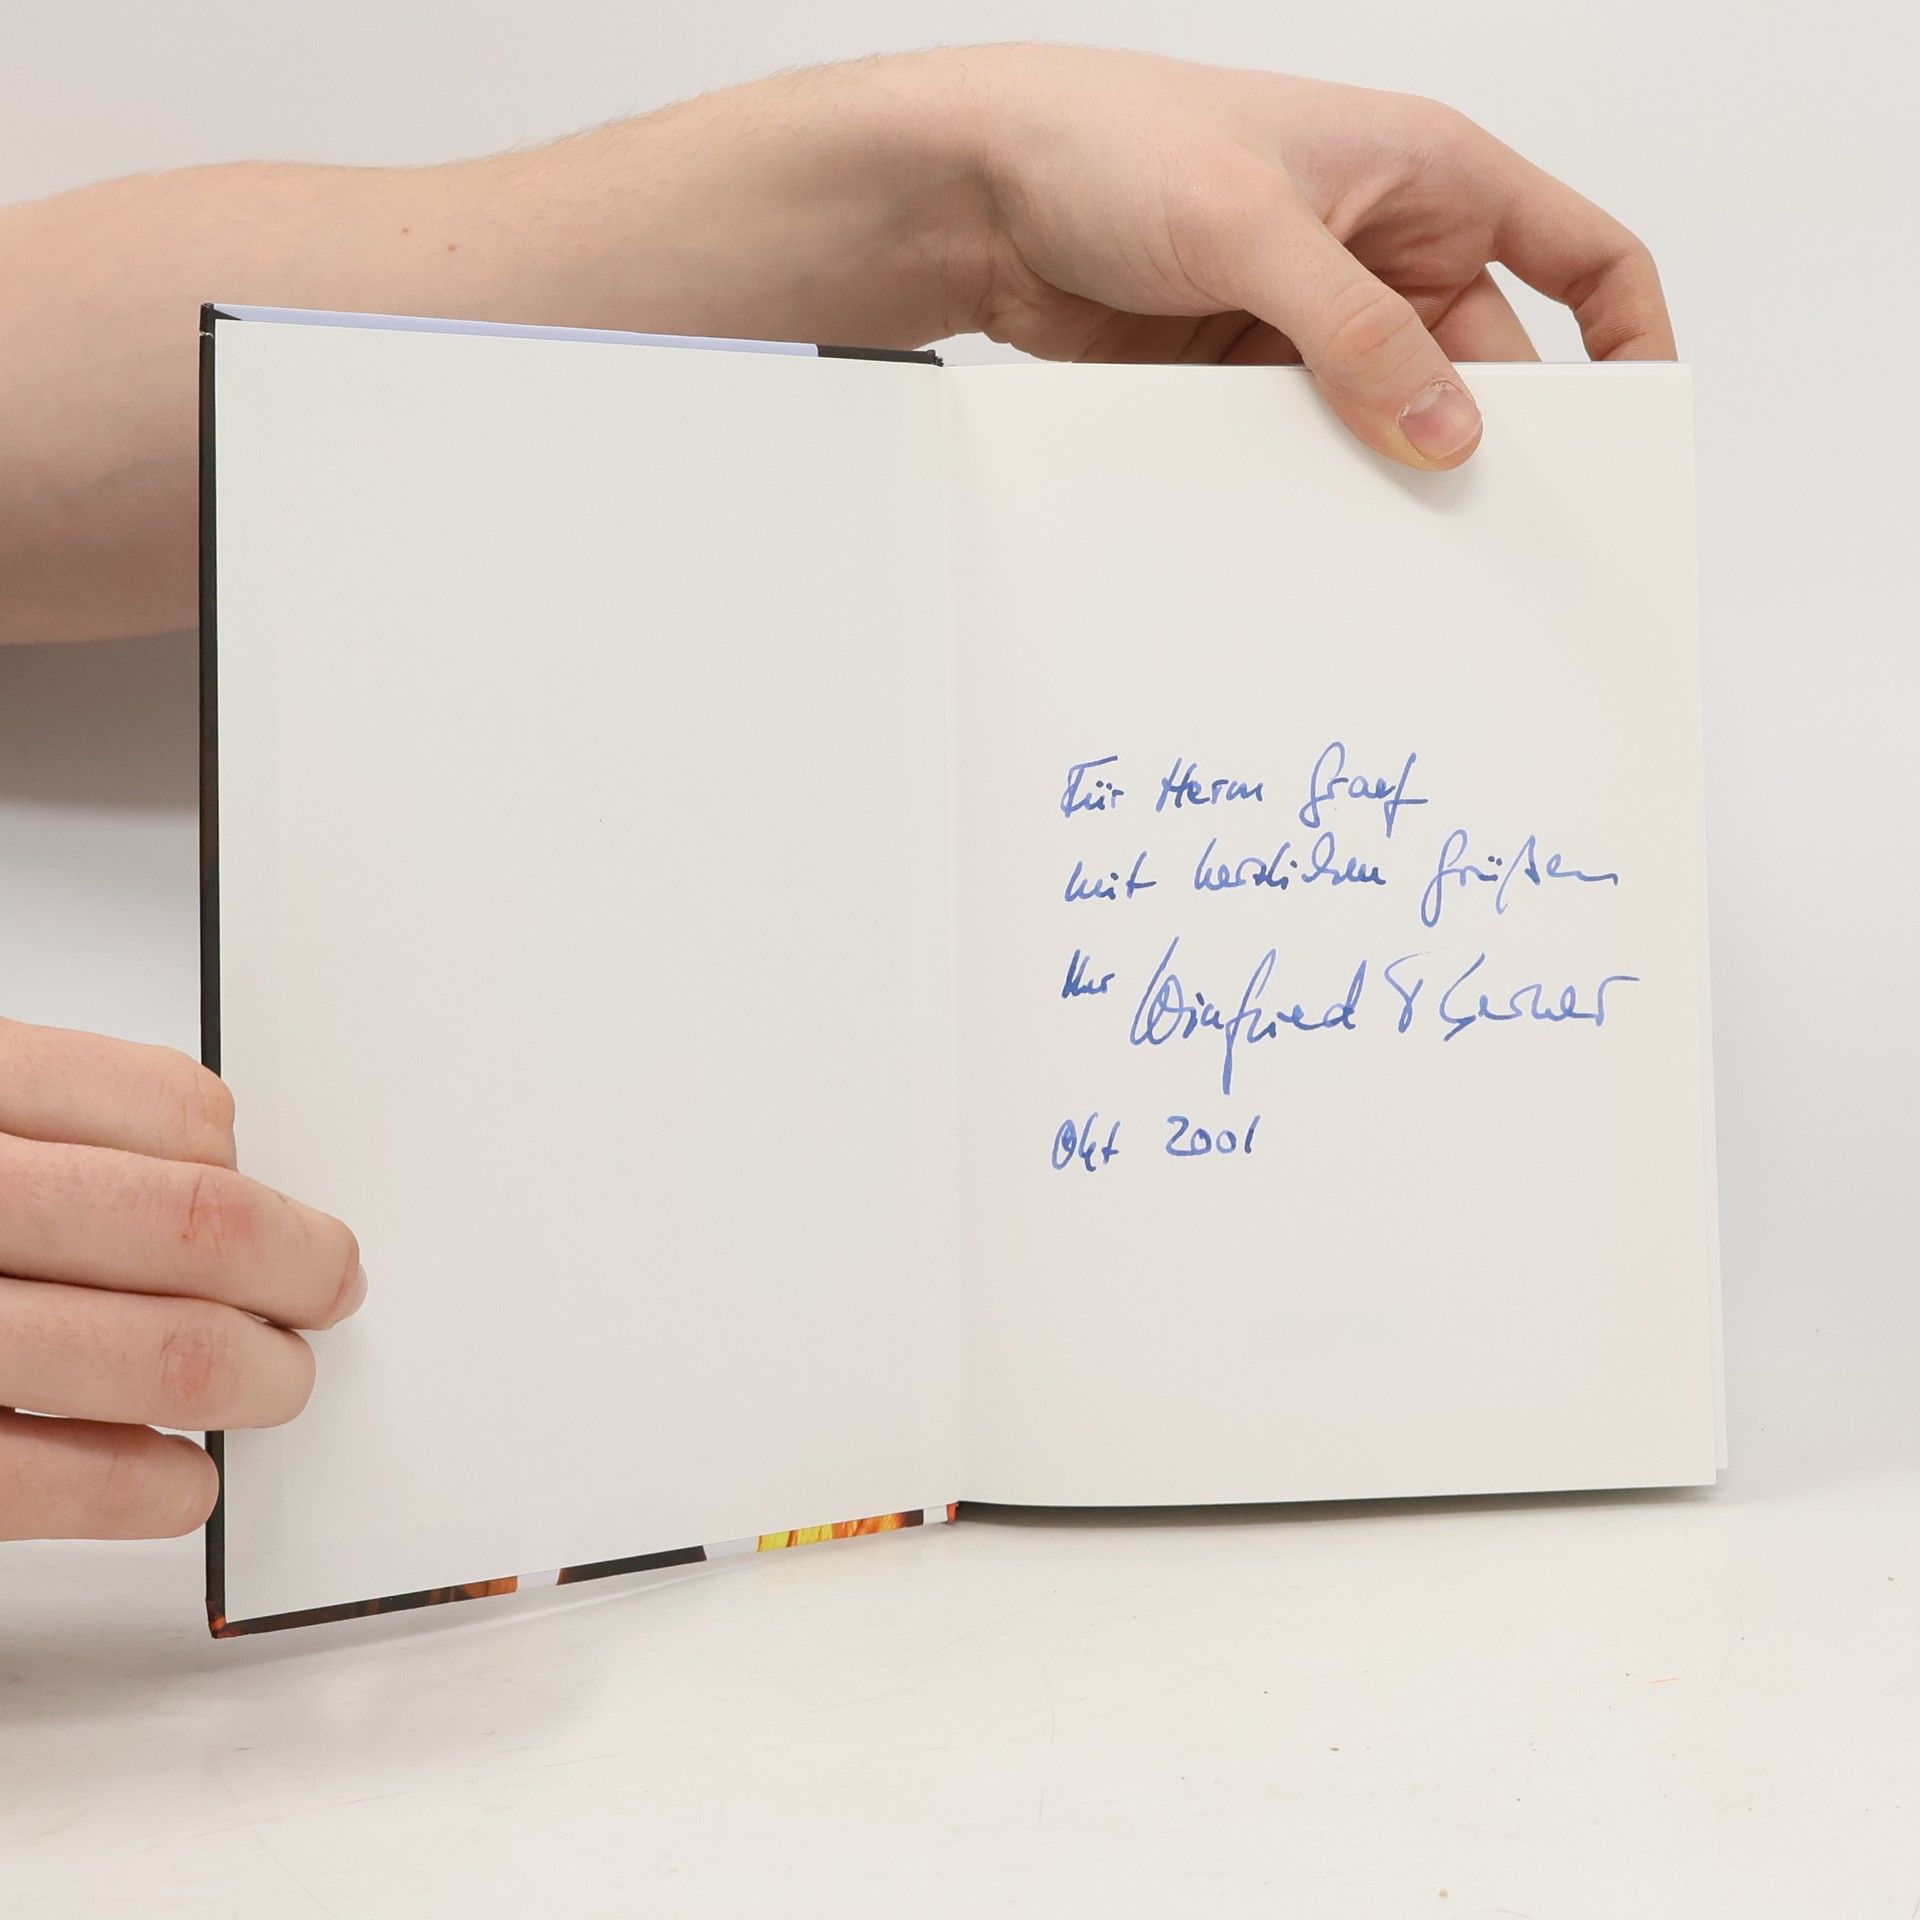 Für Herrn Graef
mit herzlichen Grüßen
Ihr Winfried
Okt 2001